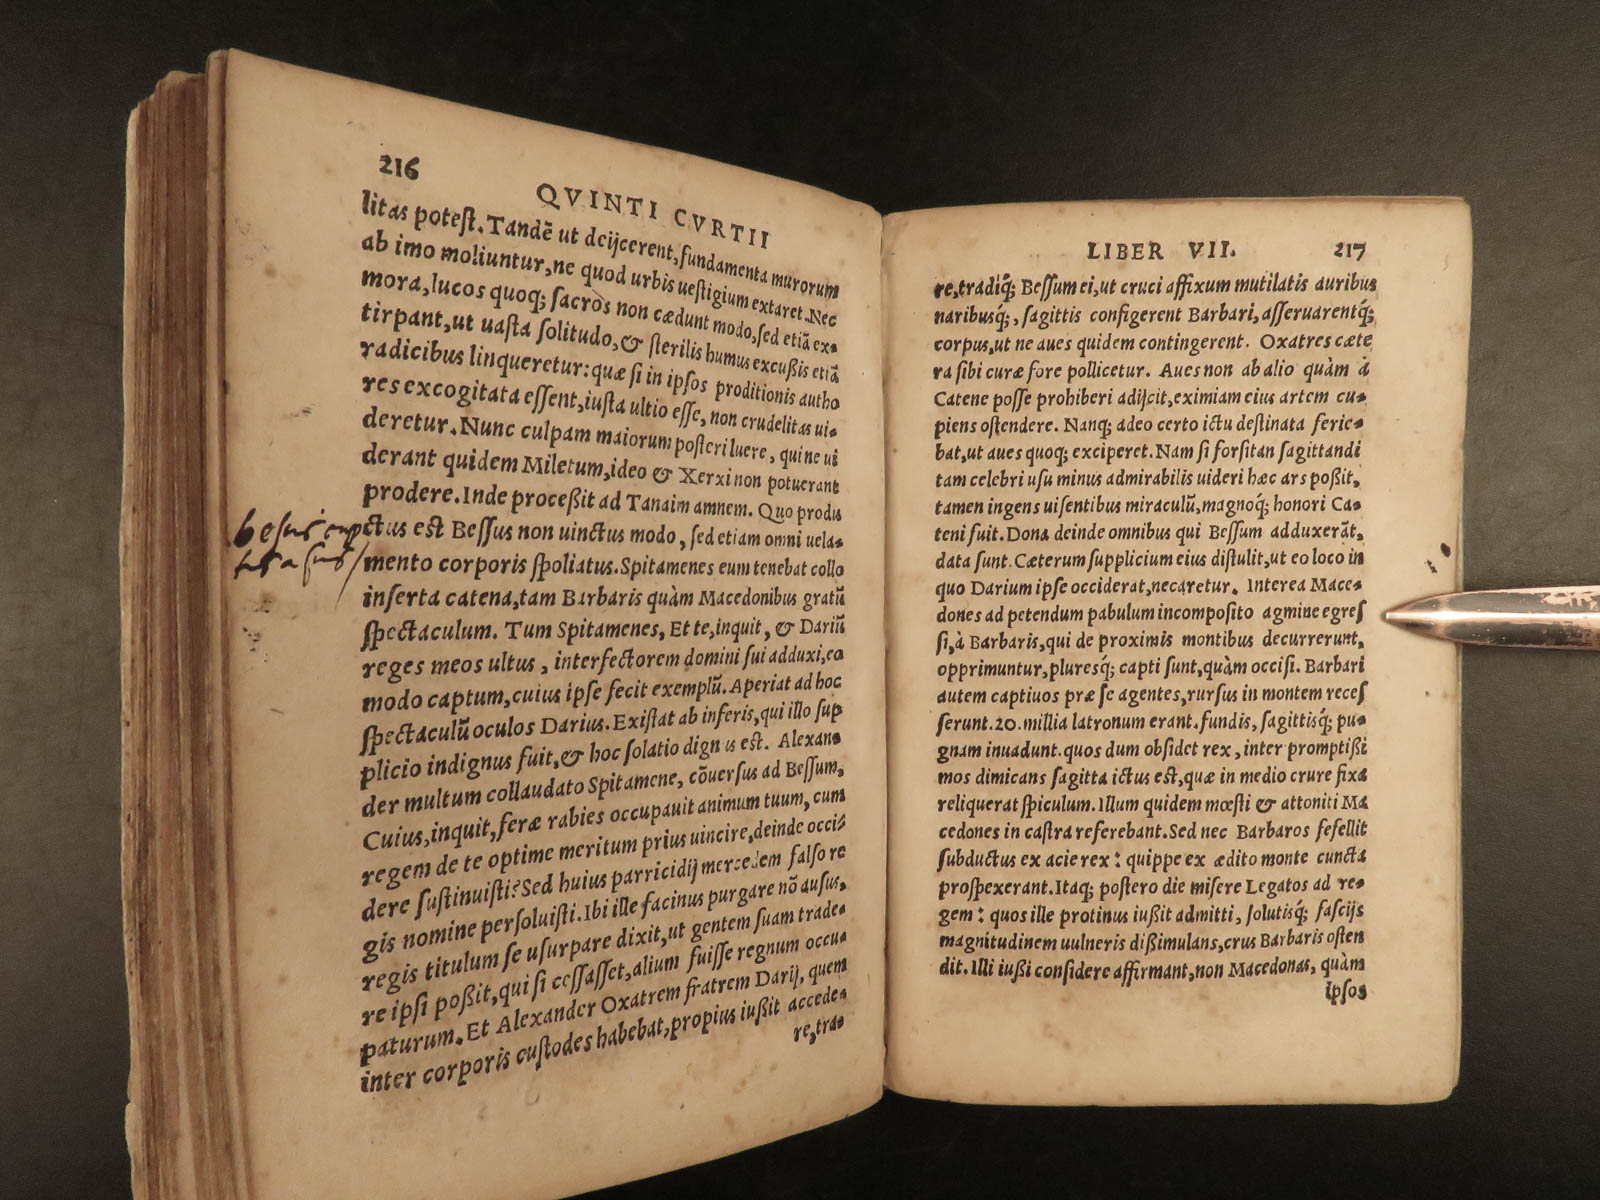 216
QVINTI CVRTII
litas poteſt. Tandẽ ut deijcerent, fundamenta murorum
ab imo moliuntur, ne quod urbis ueſtigium extaret. Nec
mora, lucos quoq; ſacros non cædunt modo, ſed etiã ex-
tirpant, ut uaſta ſolitudo, & ſterilis humus excußis etiã
radicibus linqueretur: quæ ſi in ipſos proditionis autho
res excogitata eſſent, iuſta ultio eſſe, non crudelitas ui-
deretur. Nunc culpam maiorum poſteri luere, qui ne ui
derant quidem Miletum, ideo & Xerxi non potuerant
prodere. Inde proceßit ad Tanaim amnem. Quo produ
ctus est Beſſus non uinctus modo, ſed etiam omni uela-
mento corporis ſpoliatus. Spitamenes eum tenebat collo
inſerta catena, tam Barbaris quàm Macedonibus gratũ
ſpectaculum. Tum Spitamenes, Et te, inquit, & Dariũ
reges meos ultus, interfectorem domini ſui adduxi, eo
modo captum, cuius ipſe fecit exemplũ. Aperiat ad hoc
ſpectaculũ oculos Darius. Exiſtat ab inferis, qui illo ſup
plicio indignus fuit, & hoc ſolatio dignus est. Alexan-
der multum collaudato Spitamene, cõuerſus ad Beſſum,
Cuius, inquit, feræ rabies occupauit animum tuum, cum
regem de te optime meritum prius uincire, deinde occi-
dere ſuſtinuiſti? Sed huius parricidij mercedem falſo re
gis nomine perſoluiſti. Ibi ille facinus purgare nõ auſus,
regis titulum ſe uſurpare dixit, ut gentem ſuam trade-
re ipſi poßit, qui ſi ceſſaſſet, alium fuiſſe regnum occu-
paturum. Et Alexander Oxatrem fratrem Darij, quem
inter corporis cuſtodes habebat, propius iußit accede-
re, tra-
LIBER VII.
217
re, tradiq́; Beſſum ei, ut cruci affixum mutilatis auribus
naribusq́;, ſagittis configerent Barbari, aſſeruarentq́;
corpus, ut ne aues quidem contingerent. Oxatres cæte
ra ſibi curæ fore pollicetur. Aues non ab alio quàm à
Catene poſſe prohiberi adijcit, eximiam eius artem cu-
piens oſtendere. Nanq; adeo certo ictu deſtinata ferie-
bat, ut aues quoq; exciperet. Nam ſi forſitan ſagittandi
tam celebri uſu minus admirabilis uideri hæc ars poßit,
tamen ingens uiſentibus miraculũ, magnoq́; honori Ca-
teni fuit. Dona deinde omnibus qui Beſſum adduxerãt,
data ſunt. Cæterum ſupplicium eius diſtulit, ut eo loco in
quo Darium ipſe occiderat, necaretur. Interea Mace-
dones ad petendum pabulum incompoſito agmine egreſ
ſi, à Barbaris, qui de proximis montibus decurrerunt,
opprimuntur, pluresq́; capti ſunt, quàm occiſi. Barbari
autem captiuos præ ſe agentes, rurſus in montem receſ
ſerunt. 20. millia latronum erant. fundis, ſagittisq́; pu-
gnam inuadunt. quos dum obſidet rex, inter promptißi
mos dimicans ſagitta ictus est, quæ in medio crure fixa
reliquerat ſpiculum. Illum quidem mœſti & attoniti Ma
cedones in caſtra referebant. Sed nec Barbaros fefellit
ſubductus ex acie rex: quippe ex ædito monte cuncta
proſpexerant. Itaq; poſtero die miſere Legatos ad re-
gem: quos ille protinus iußit admitti, ſolutisq́; faſcijs
magnitudinem uulneris dißimulans, crus Barbaris oſten
dit. Illi iußi conſidere affirmant, non Macedonas, quàm
ipſos